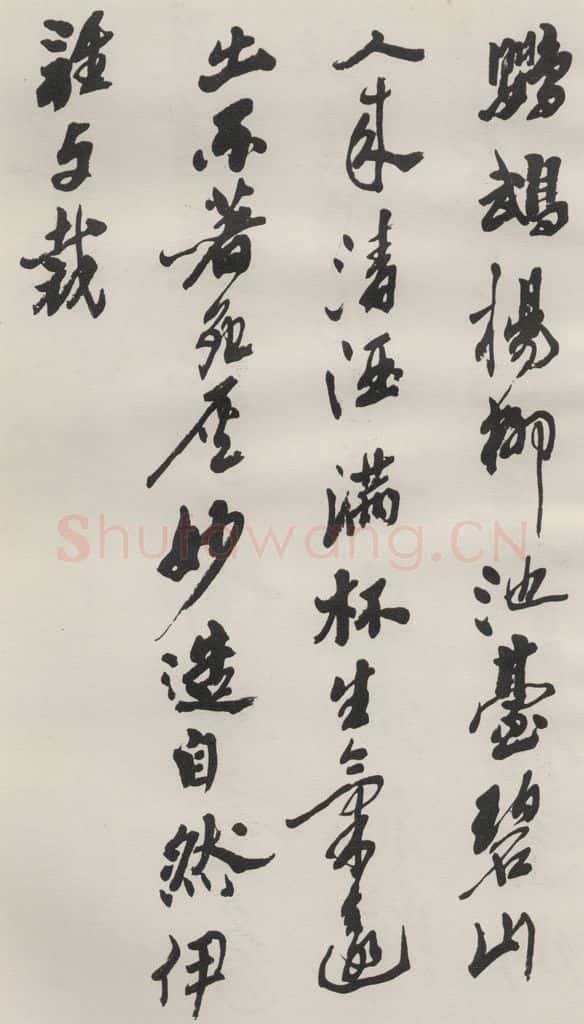 鸚鵡楊柳池臺碧山
人來清酒滿杯生氣遠
出不著死灰妙造自然伊
誰与裁
Shufawang.CN